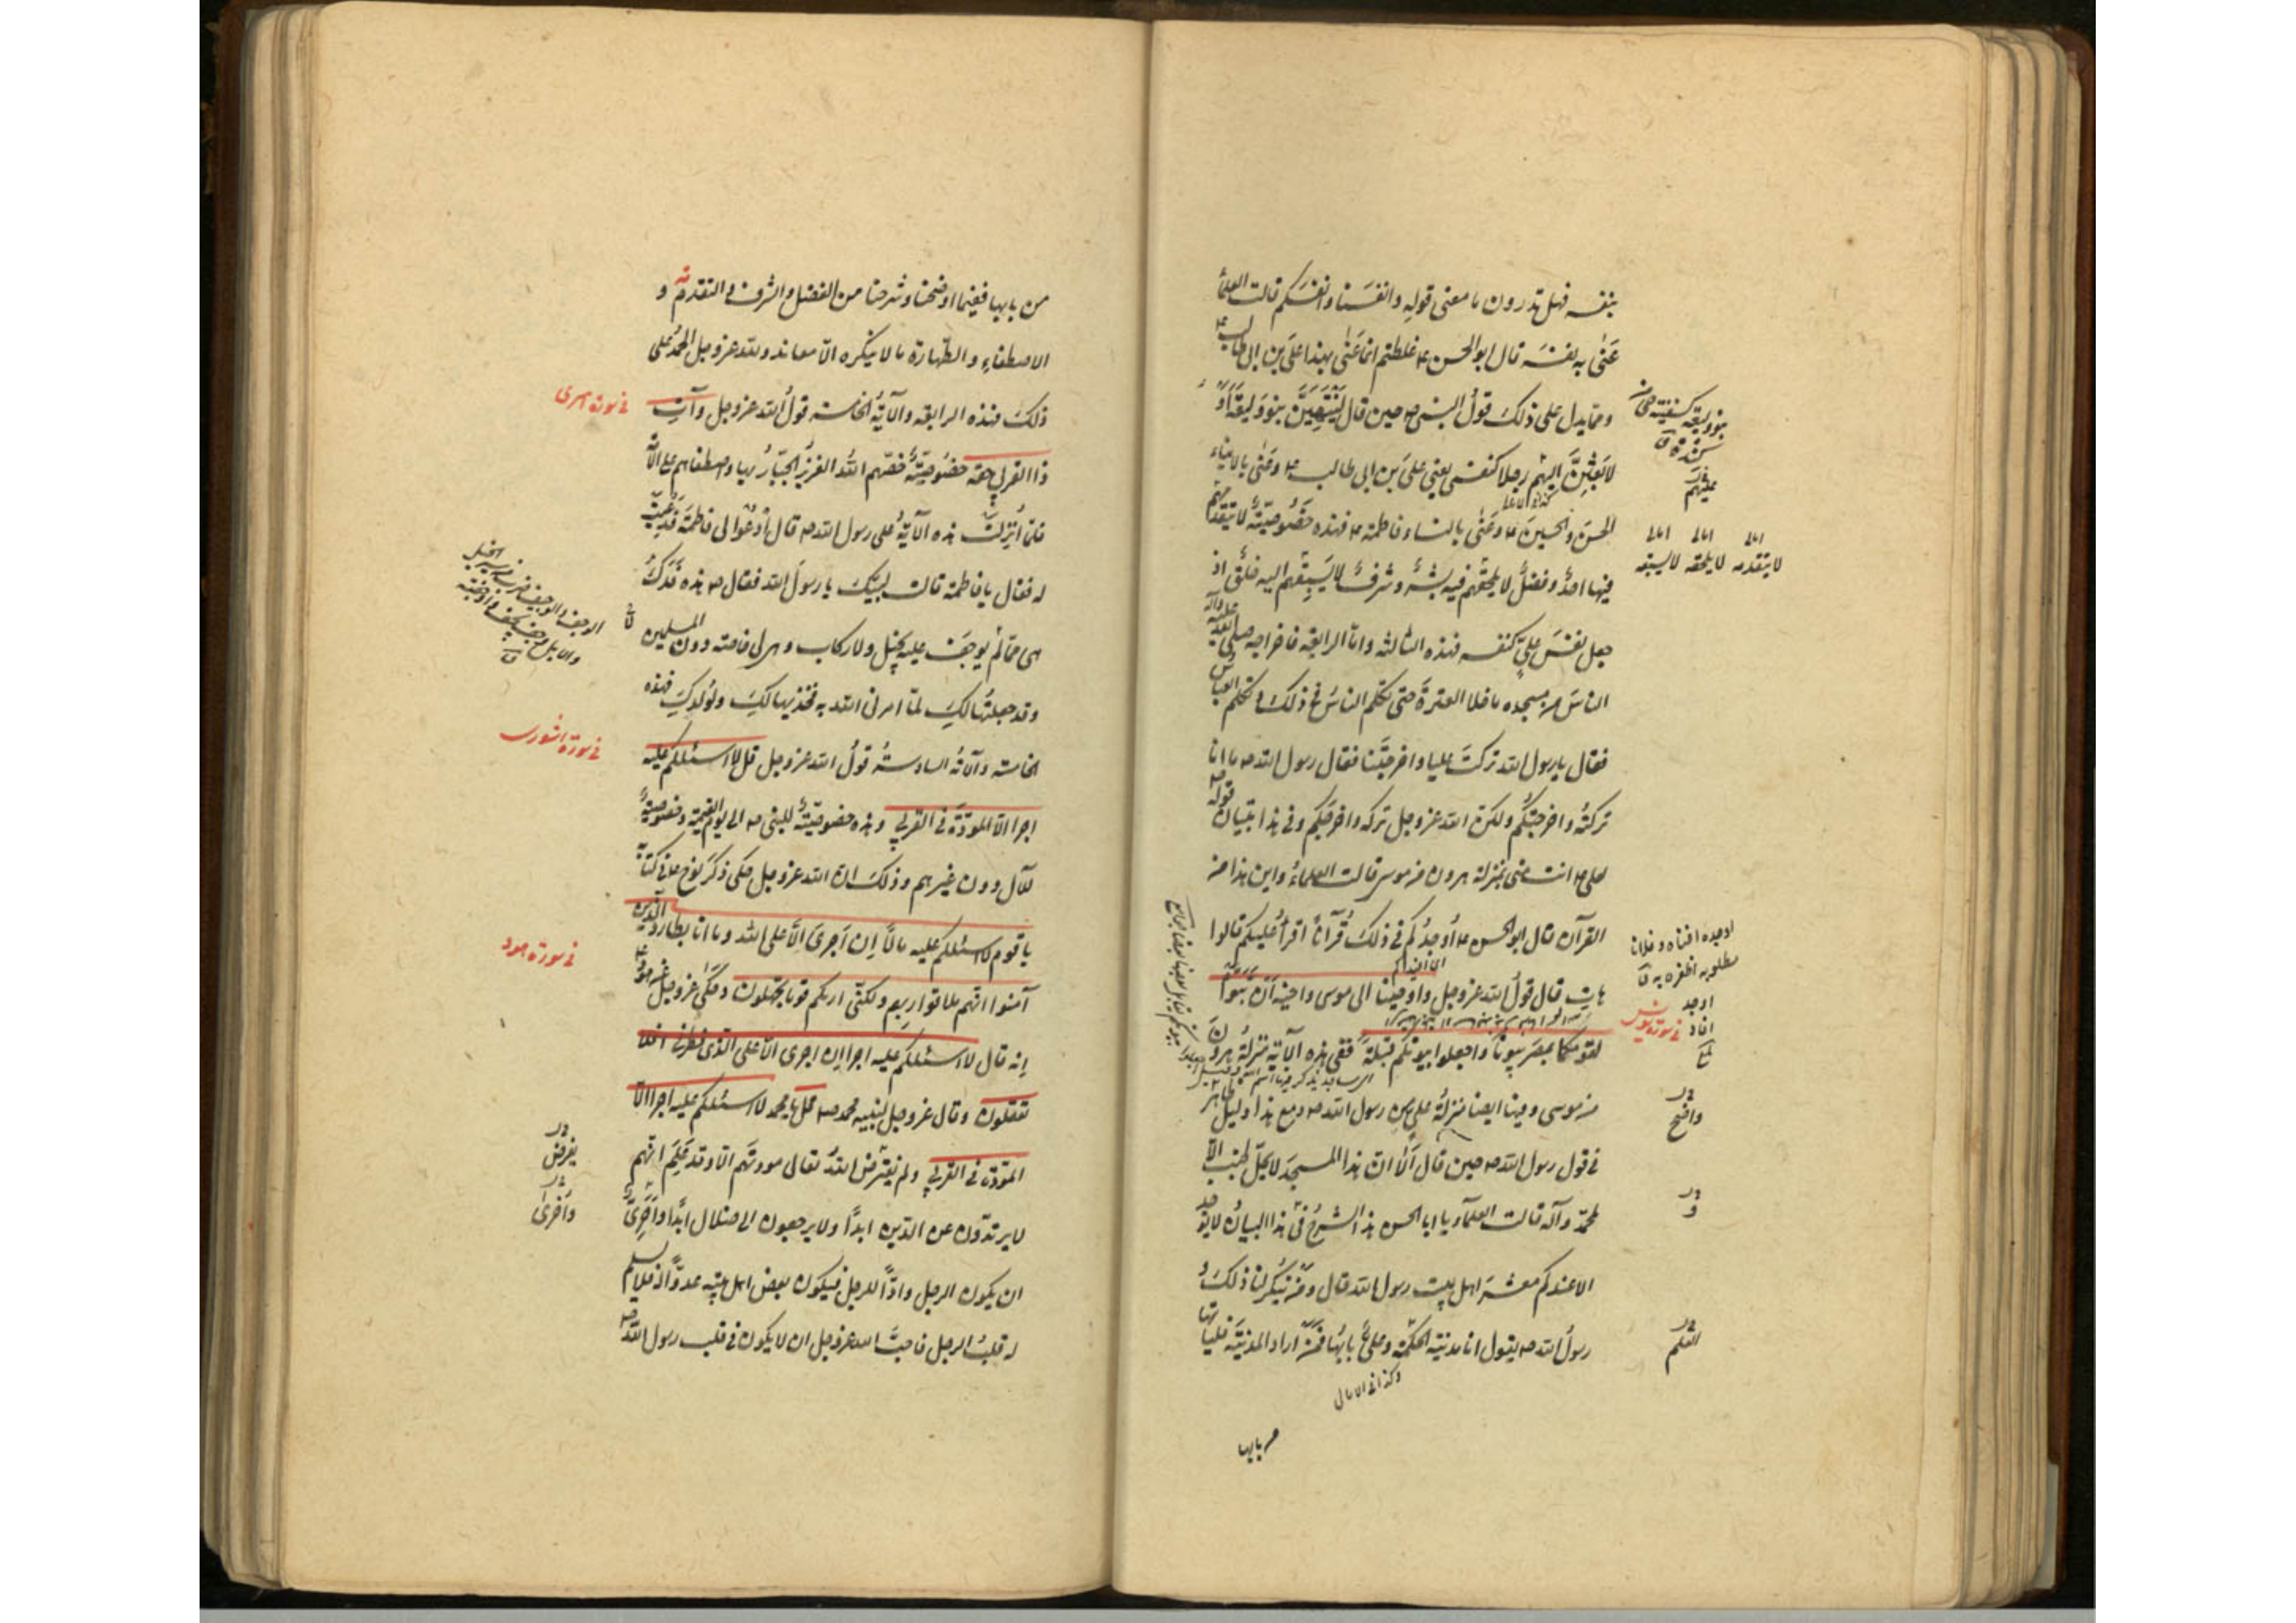 بنفسه فهل تدرون ما معنى قوله وانفسنا وانفسكم قالت العلماء
عنى به نفسه قال ابو الحسن ع غلطتم انما عنى بهذا علي بن ابي طالب ع
ومما يدل على ذلك قول النبي ص حين قال لينتهين بنو وليعة او
لابعثن اليهم رجلا كنفسي يعني علي بن ابي طالب ع وعنى بالابناء
الحسن والحسين ع وعنى بالنساء فاطمة ع فهذه خصوصية لا يتقدمهم
فيها احد وفضل لا يلحقهم فيه بشر وشرف لا يسبقهم اليه خلق اذ
جعل نفس علي كنفسه فهذه الثالثة واما الرابعة فاخراجه صلى الله عليه وآله
الناس من مسجده ما خلا العترة حتى تكلم الناس في ذلك وتكلم العباس
فقال يا رسول الله تركت عليا واخرجتنا فقال رسول الله ص ما انا
تركته واخرجتكم ولكن الله عز وجل تركه واخرجكم وفي هذا تبيان قوله ص
لعلي ع انت مني بمنزلة هرون من موسى قالت العلماء واين هذا من
القرآن قال ابو الحسن ع أوجدكم في ذلك قرآنا اقرأه عليكم قالوا
هات قال قول الله عز وجل واوحينا الى موسى واخيه أن تبوّا
لقومكما بمصر بيوتا واجعلوا بيوتكم قبلة ففي هذه الآية منزلة هرون
من موسى وفيها ايضا منزلة علي من رسول الله ص ومع هذا دليل ظاهر
في قول رسول الله ص حين قال ألا ان هذا المسجد لا يحل لجنب الا
لمحمد وآله قالت العلماء يا ابا الحسن هذا الشرح في هذا البيان لا يوجد
الا عندكم معشر اهل بيت رسول الله قال ومن ينكر لنا ذلك و
رسول الله ص يقول انا مدينة الحكمة وعلي بابها فمن اراد المدينة فلياتها
وكذا في الامالي
من بابها
بنو وليعة كسفينة حي من
كندة ق
عليهم
امالي امالي امالي
لا يتقدمه لا يلحقه لا يسبقه
اوجده اغناه وفلانا
مطلوبه اظفره به ق
في سورة يونس
واضح
و
العلم
من بابها ففيما اوضحنا وشرحنا من الفضل والشرف والتقدمة و
الاصطفاء والطهارة ما لا ينكره الا معاند ولله عز وجل الحمد على
ذلك فهذه الرابعة والآية الخامسة قول الله عز وجل وآت
ذا القربى حقه خصوصية خصهم الله العزيز الجبار بها واصطفاهم على الامة
فلما انزلت هذه الآية على رسول الله ص قال ادعوا لي فاطمة فدعيت
له فقال يا فاطمة قالت لبيك يا رسول الله فقال ص هذه فدك
هي مما لم يوجف عليه بخيل ولا ركاب وهي لي خاصة دون المسلمين
وقد جعلتها لك لما امرني الله به فخذيها لك ولولدك فهذه
الخامسة والآية السادسة قول الله عز وجل قل لا اسئلكم عليه
اجرا الا المودة في القربى وهذه خصوصية للنبي ص الى يوم القيمة وخصوصية
للآل دون غيرهم وذلك ان الله عز وجل حكى ذكر نوح ع في كتابه
يا قوم لا اسئلكم عليه مالا إن اجري الا على الله وما انا بطارد الذين
آمنوا انهم ملاقوا ربهم ولكني اريكم قوما تجهلون وحكى عز وجل عن هود ع
انه قال لا اسئلكم عليه اجرا ان اجري الا على الذي فطرني افلا
تعقلون وقال عز وجل لنبيه محمد ص قل يا محمد لا اسئلكم عليه اجرا الا
المودة في القربى ولم يفترض الله تعالى مودتهم الا وقد علم انهم
لا يرتدون عن الدين ابدا ولا يرجعون الى ضلال ابدا واخرى
ان يكون الرجل وادا للرجل فيكون بعض اهل بيته عدوا له فلا يسلم
له قلب الرجل فاحب الله عز وجل ان لا يكون في قلب رسول الله ص
في سورة اسرى
في سورة شورى
في سورة هود
يفرض
واخرى